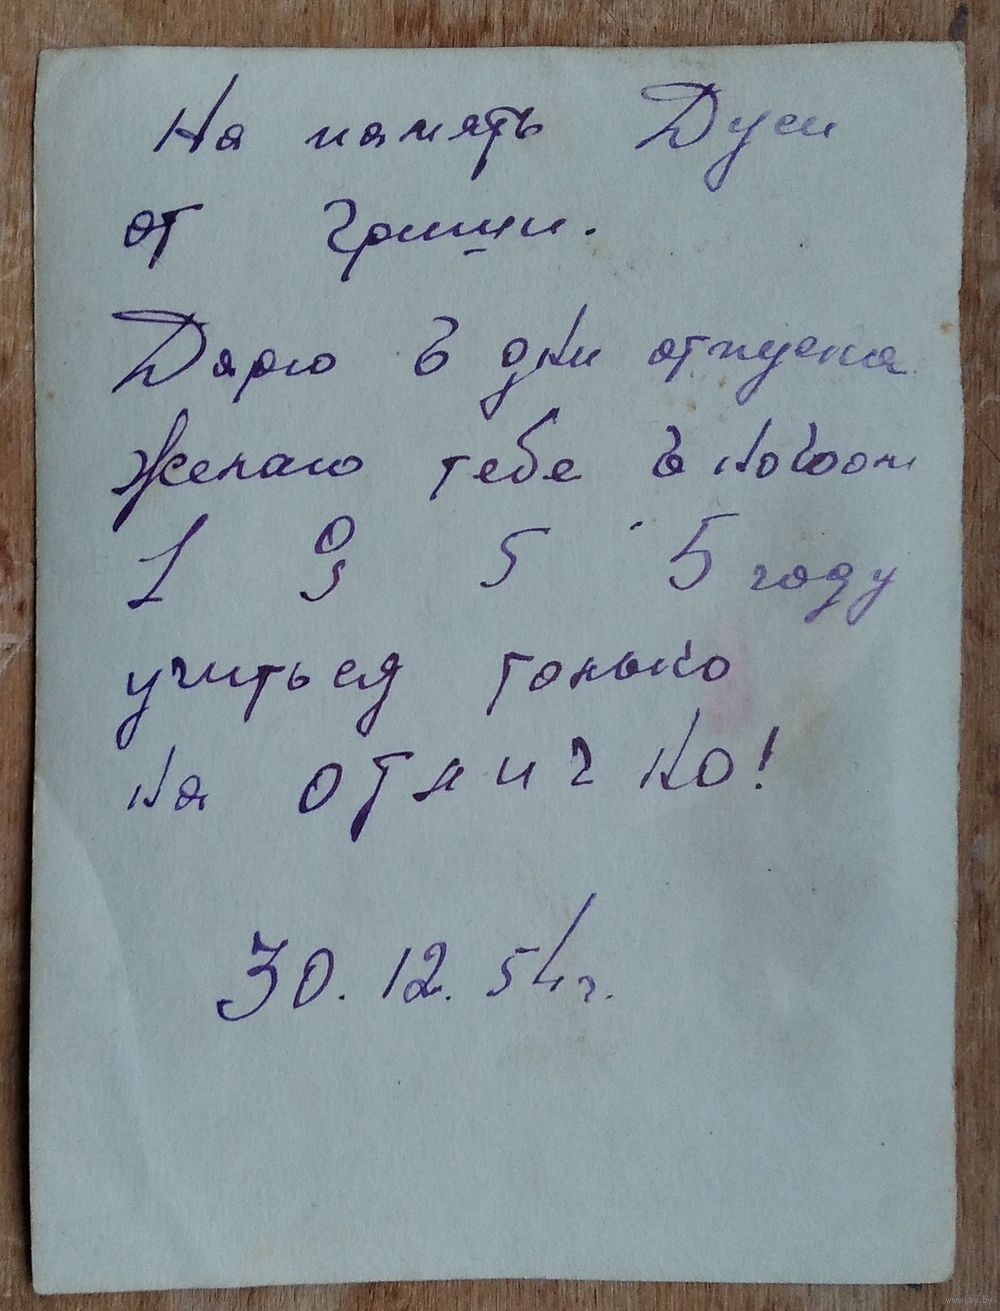 На память Дуси
от Гриши.
Дярю в дни отпуска
Желаю тебе в новом
1 9 5 5 году
учиться только
на отлично!
30.12.54г.
www.ay.by